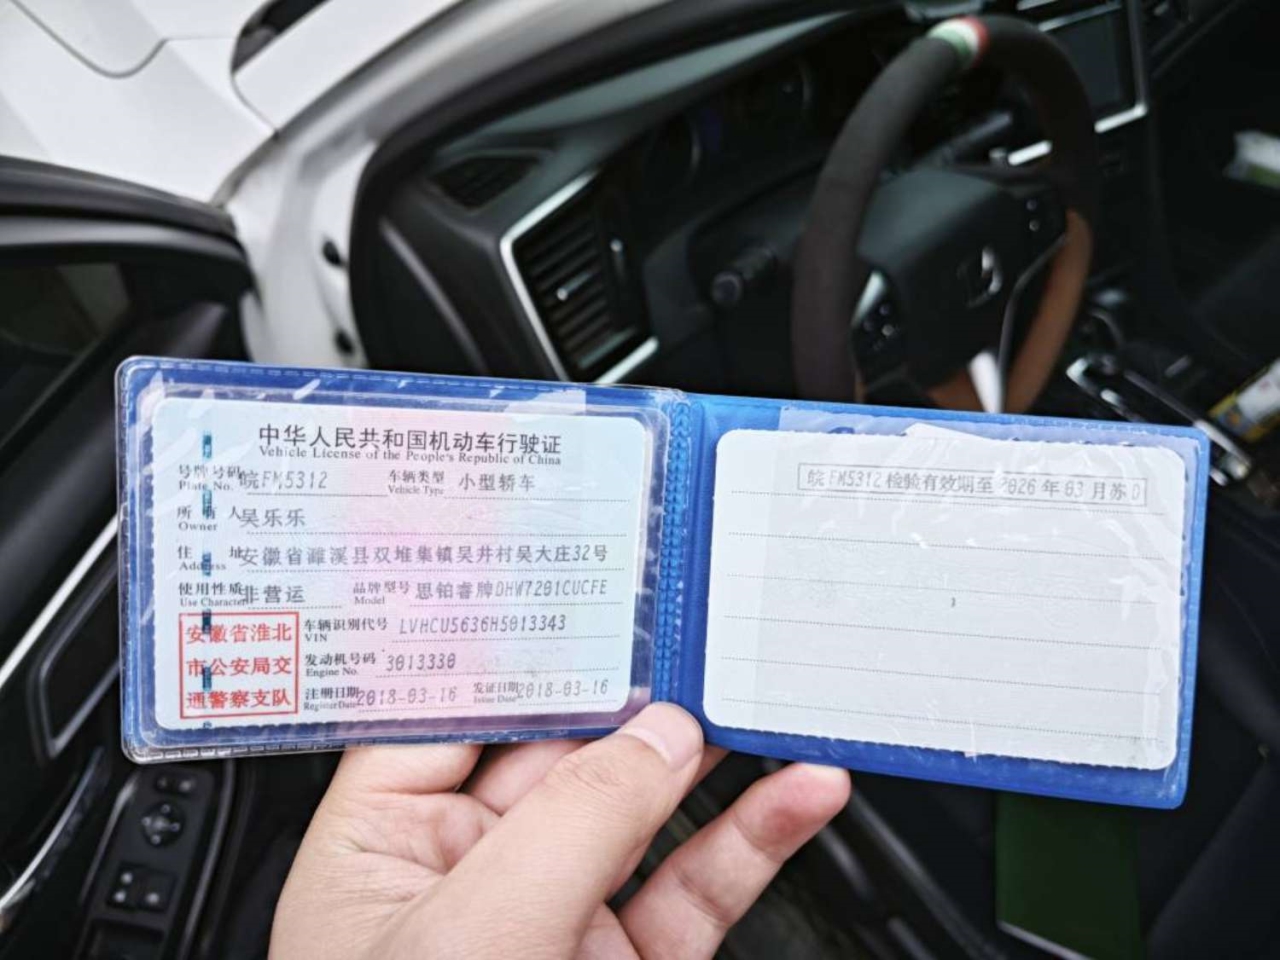 中华人民共和国机动车行驶证
Vehicle License of the People's Republic of China
号牌号码 皖FM5312 车辆类型 小型轿车
Plate No. Vehicle Type
所有人 吴乐乐
Owner
住址 安徽省濉溪县双堆集镇吴井村吴大庄32号
Address
使用性质 非营运 品牌型号 思铂睿牌DHW7201CUCFE
Use Character Model
安徽省淮北
市公安局交
通警察支队
车辆识别代号 LVHCU5636H5013343
VIN
发动机号码 3013330
Engine No.
注册日期 2018-03-16 发证日期 2018-03-16
Register Date Issue Date
皖FM5312检验有效期至2026年03月苏D